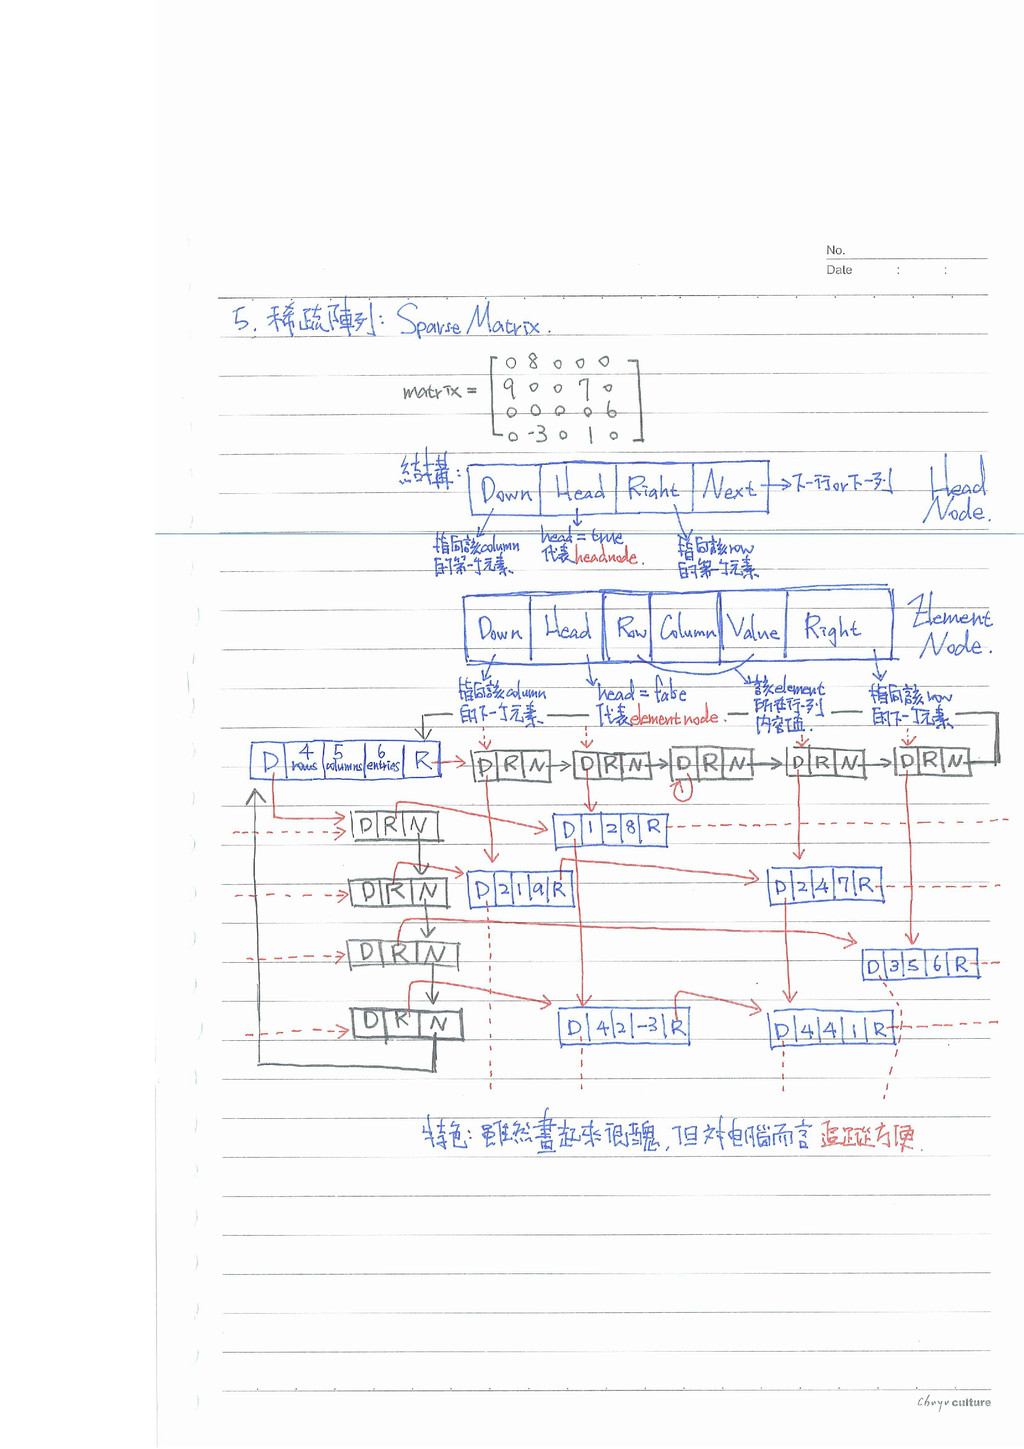 No.
Date : :
5. 稀疏陣列: Sparse Matrix.
matrix =
0 8 0 0 0
9 0 0 7 0
0 0 0 0 6
0 -3 0 1 0
結構:
Down Head Right Next
下一行or下一列
Head Node.
指向該column的第一个元素
head = true 代表headnode.
指向該row的第一个元素
Down Head Row Column Value Right
Element Node.
指向該column的下一个元素
head = false 代表element node.
該element所在行、列內容值.
指向該row的下一个元素
D 4 rows 5 columns 6 entries R
D R N D R N D R N D R N D R N
D R N D 1 2 8 R
D R N D 2 1 9 R D 2 4 7 R
D R N D 3 5 6 R
D R N D 4 2 -3 R D 4 4 1 R
特色: 雖然畫起來很醜, 但對電腦而言 追蹤方便.
Chuyu culture